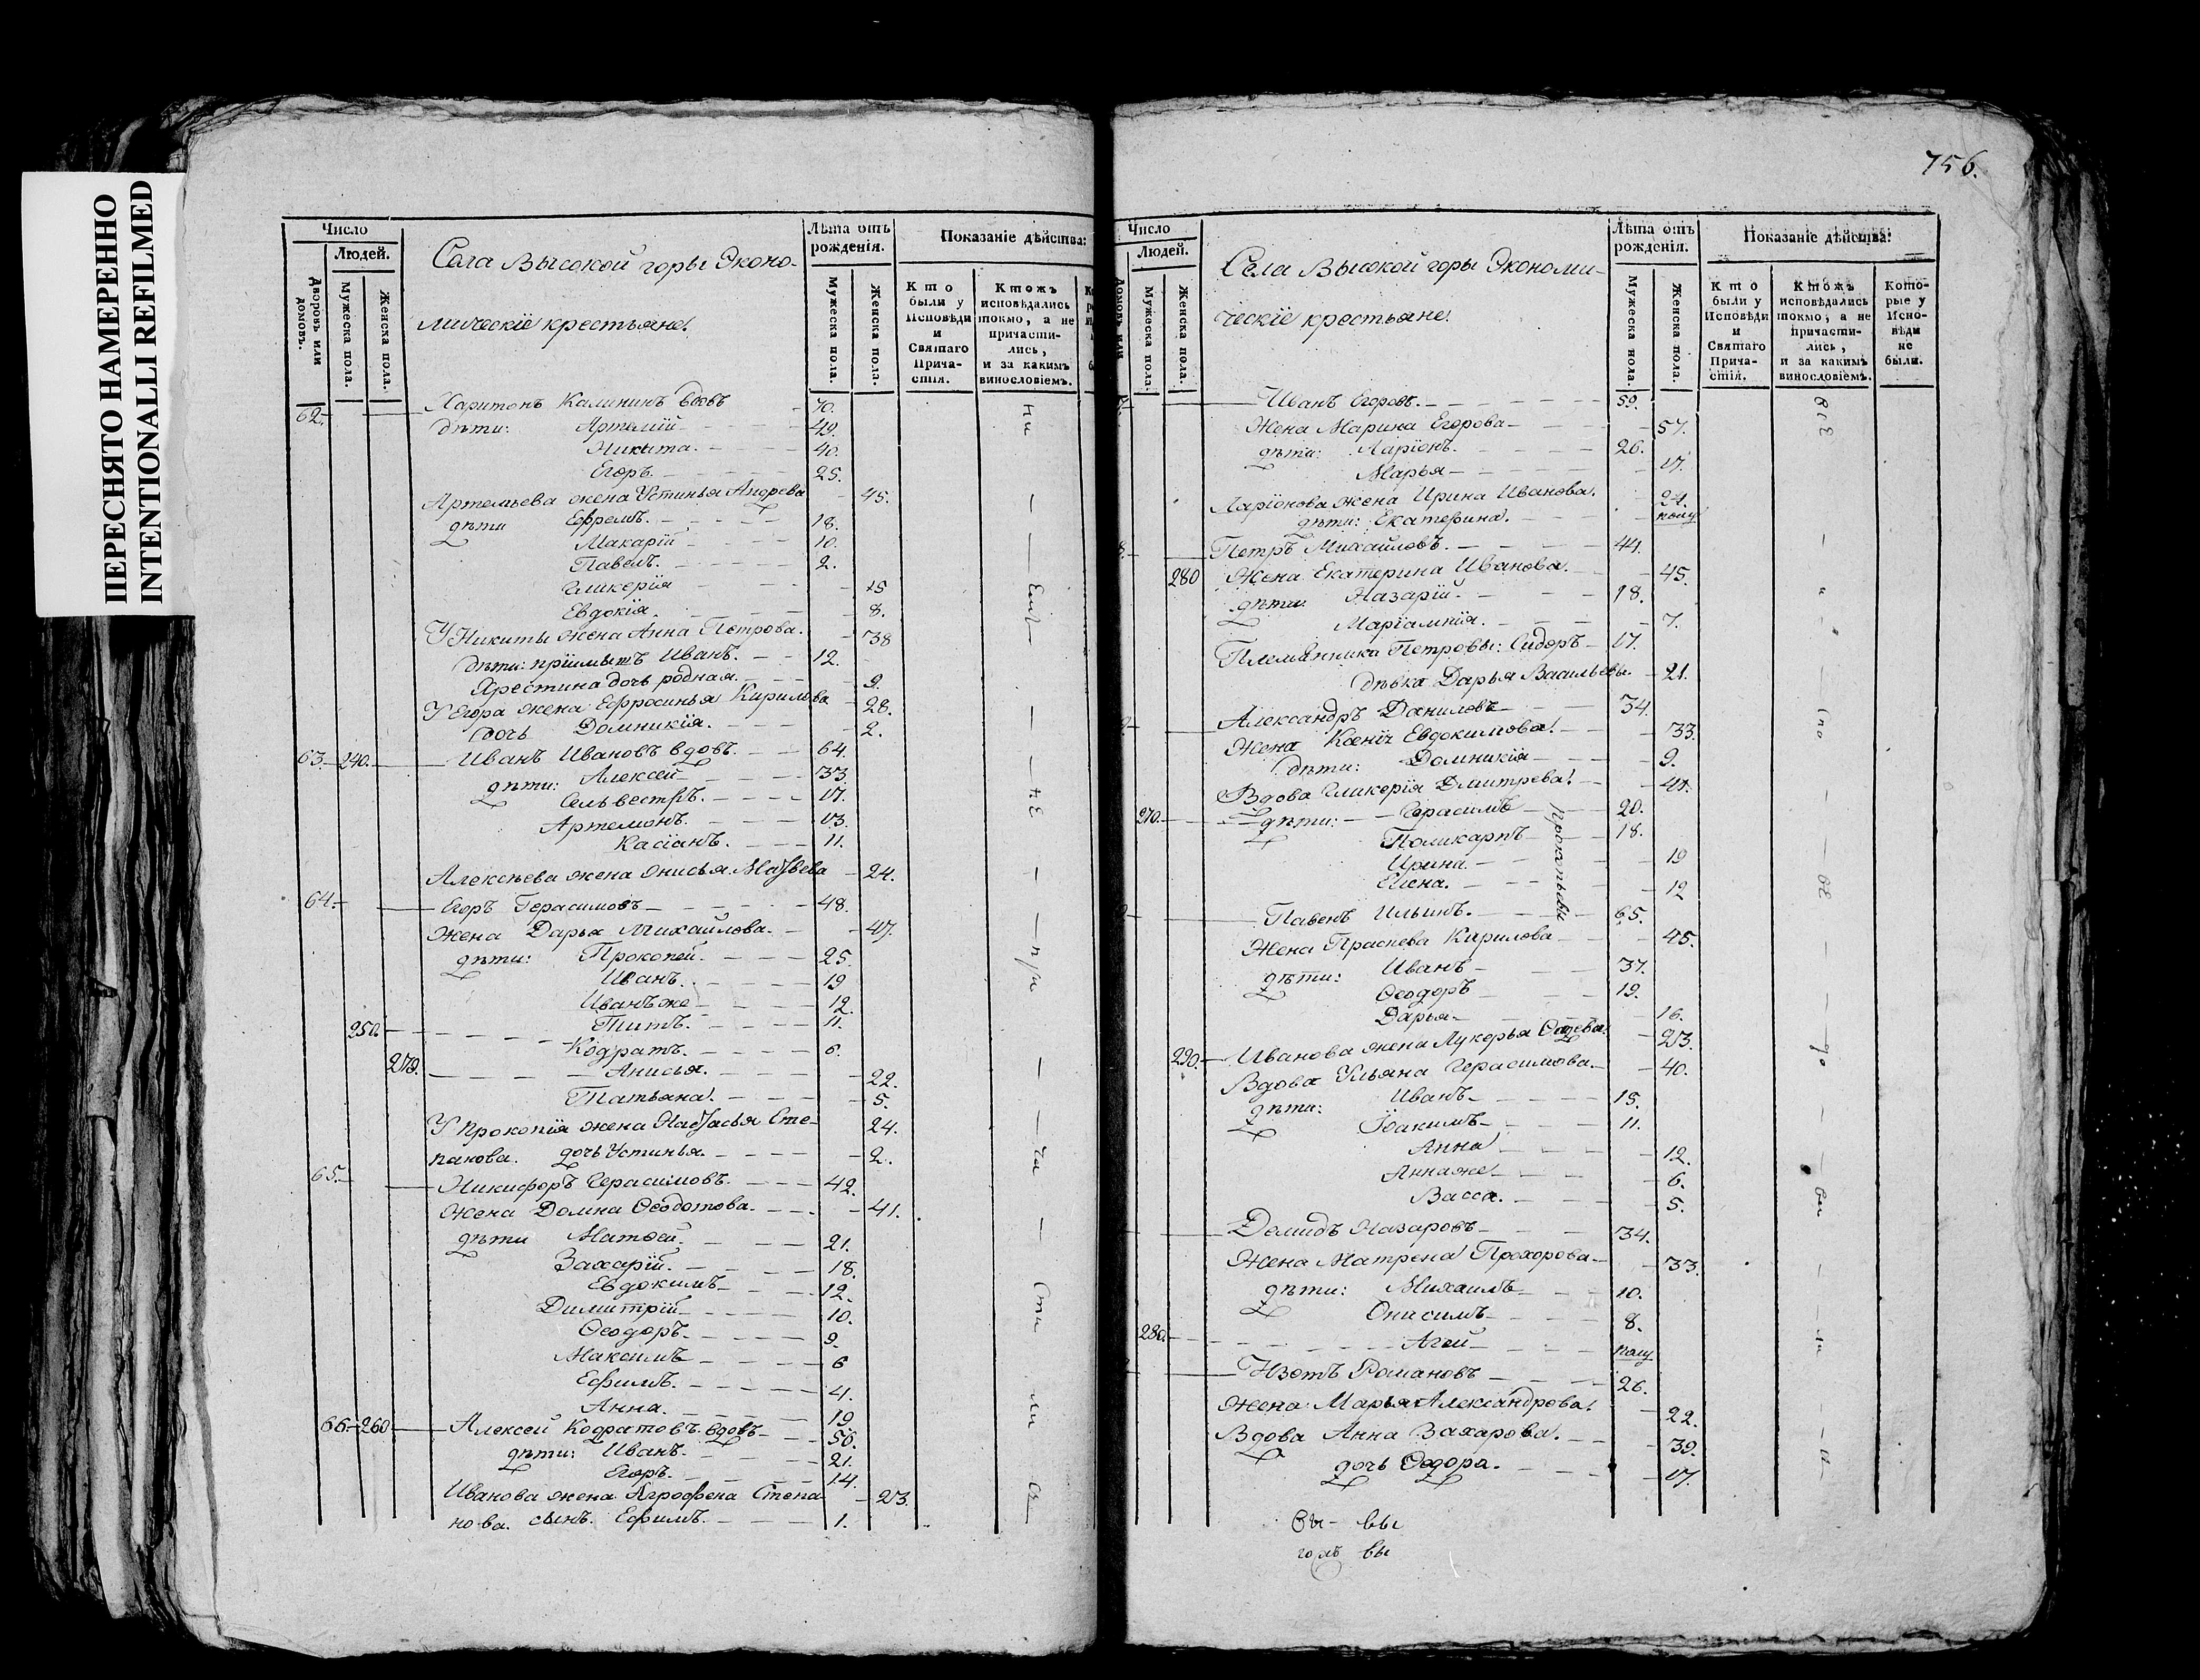 ПЕРЕСНЯТО НАМЕРЕННО
INTENTIONALLI REFILMED
Число
Людей.
Дворовъ или домовъ.
Мужеска пола.
Женска пола.
Села Высокой горы Эконо-
мическiе крестьяне.
Лѣта отъ рожденiя.
Мужеска пола.
Женска пола.
Показанiе дѣйства:
Кто были у Исповѣди и Святаго Прича-стiя.
Ктожъ исповѣдались токмо, а не причасти-лись, и за какимъ винословiемъ.
62. Харитонъ Калининъ вдовъ 70.
дѣти: Артемiй 49.
Никита. 40.
Егоръ. 25.
Артемьева жена Устинья Андрева 45.
дѣти Ефремъ. 18.
Макарiй 10.
Павелъ. 2.
Гликерiя 15
Евдокiя. 8.
У Никиты жена Анна Петрова. 38
дѣти: прiимышъ Иванъ. 12.
Христина дочь родная. 9.
У Егора жена Ефросинья Кирилова 28.
дочь Домникiя. 2.
63. 240. Иванъ Ивановъ вдовъ. 64.
дѣти: Алексей 33.
Сельвестръ. 17.
Артемонъ. 13.
Касiанъ. 11.
Алексѣева жена Онисья Матвева 24.
64. Егоръ Герасимовъ 48.
Жена Дарья Михайлова. 47.
дѣти: Прокопей. 25.
Иванъ. 19
Иванъ же 12.
250. Титъ. 11.
Кодратъ. 6.
270. Анисья. 22.
Татьяна. 5.
У Прокопiя жена Настасья Сте- 24.
панова. дочь Устинья. 2.
65. Никифоръ Герасимовъ. 42.
Жена Домна Ѳеодотова. 41.
дѣти Матѳей. 21.
Захарiй. 18.
Евдокимъ 12.
Димитрiй 10.
Ѳеодоръ. 9.
Максимъ 6
Ефимъ. 4.
Анна. 19
66. 260 Алексей Кодратовъ вдовъ 56.
дѣти: Иванъ. 21.
Егоръ. 14.
Иванова жена Агрофена Степа- 23.
нова. сынъ Ефимъ. 1.
756.
Число
Людей.
Мужеска пола.
Женска пола.
Села Высокой горы Экономи-
ческiе крестьяне.
Лѣта отъ рожденiя.
Мужеска пола.
Женска пола.
Показанiе дѣйства:
Кто были у Исповѣди и Святаго Прича-стiя.
Ктожъ исповѣдались токмо, а не причасти-лись, и за какимъ винословiемъ.
Кото-рые у Испо-вѣди не были.
Иванъ Егоровъ. 59.
Жена Марина Егорова 57.
дѣти: Ларiонъ. 26.
Марья 17.
Ларiонова жена Ирина Иванова. 24.
дѣти: Екатерина. полу
Петръ Михайловъ. 44.
280 Жена Екатерина Иванова. 45.
дѣти: Назарiй. 18.
Марiамнiя. 7.
Племянника Петровы: Сидоръ 17.
дѣвка Дарья Васильевы. 21.
Александръ Даниловъ 34.
Жена Ксенiя Евдокимова. 33.
дѣти: Домникiя 9.
Вдова Гликерiя Дмитрева. 47.
270. дѣти: Герасимъ 20.
Прокопьевы
Поликарпъ 18.
Ирина. 19
Елена. 12
Павелъ Ильинъ. 65.
Жена Праскева Кирилова 45.
дѣти: Иванъ 37.
Ѳеодоръ 19.
Дарья 16.
290. Иванова жена Лукерья 23.
Вдова Ульяна Герасимова. 40.
дѣти: Иванъ 15.
Iоакимъ 11.
Анна 12.
Анна же 6.
Васса. 5.
Демидъ Назаровъ 34.
Жена Матрена Прохорова 33.
дѣти: Михаилъ 10.
Онисимъ 8.
280. Агей полу
Изотъ Романовъ 26.
Жена Марья Александрова. 22.
Вдова Анна Захарова. 39.
дочь Ѳедора. 17.